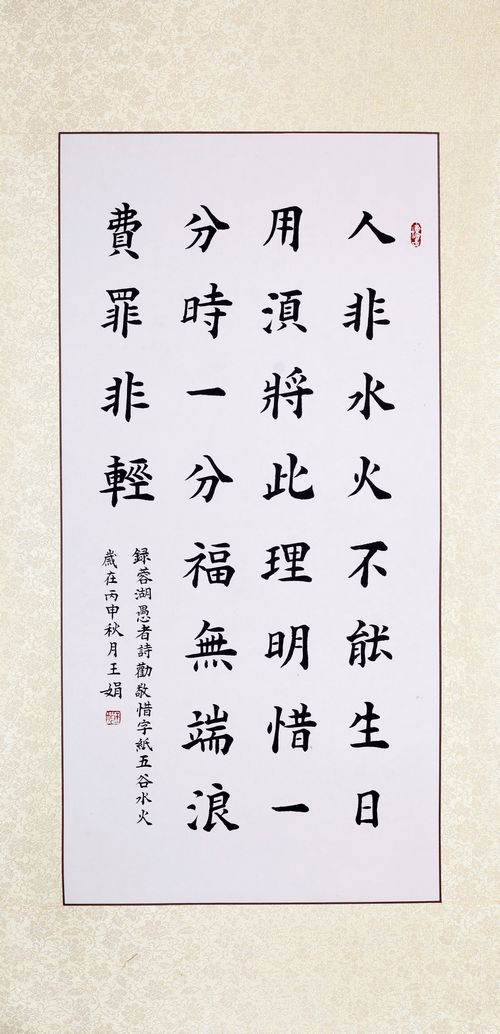 人非水火不能生日
用須將此理明惜一
分時一分福無端浪
費罪非輕
録蓉湖愚者詩勸敬惜字紙五谷水火
歲在丙申秋月王娟